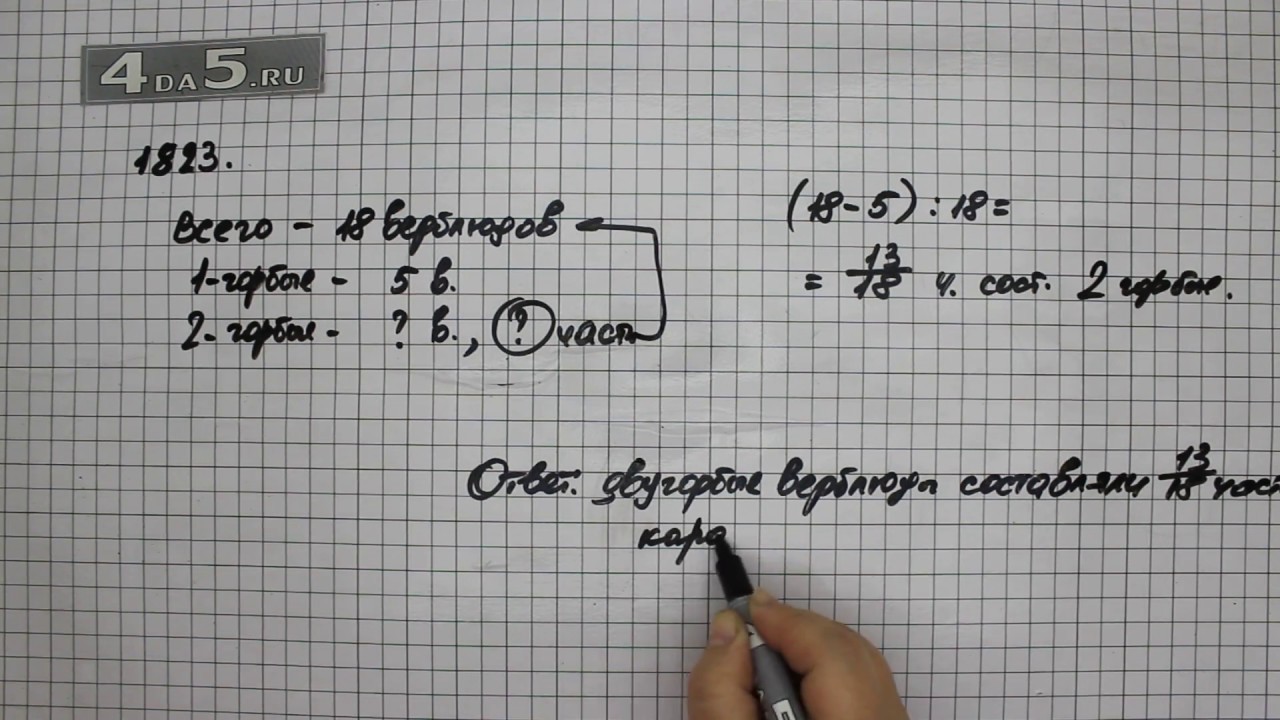 4DA5.RU
1823.
Всего - 18 верблюдов
1-горбые - 5 в.
2-горбые - ? в., ? часть
(18-5):18=
= 13/18 ч. сост. 2 горбые.
Ответ: двугорбые верблюды составляли 13/18 част
кара